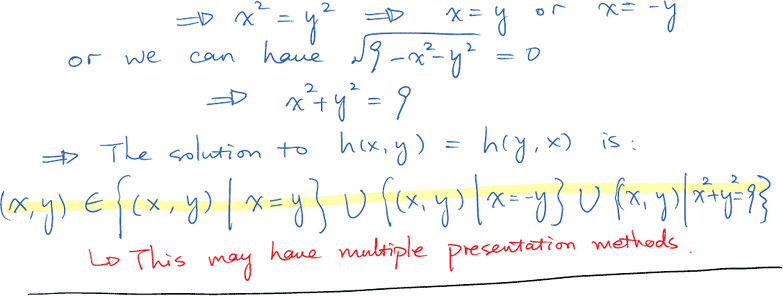 ⇒ x² = y² ⇒ x = y or x = -y
or we can have √(9 - x² - y²) = 0
⇒ x² + y² = 9
⇒ The solution to h(x, y) = h(y, x) is:
(x, y) ∈ {(x, y) | x = y} ∪ {(x, y) | x = -y} ∪ {(x, y) | x² + y² = 9}
↳ This may have multiple presentation methods.